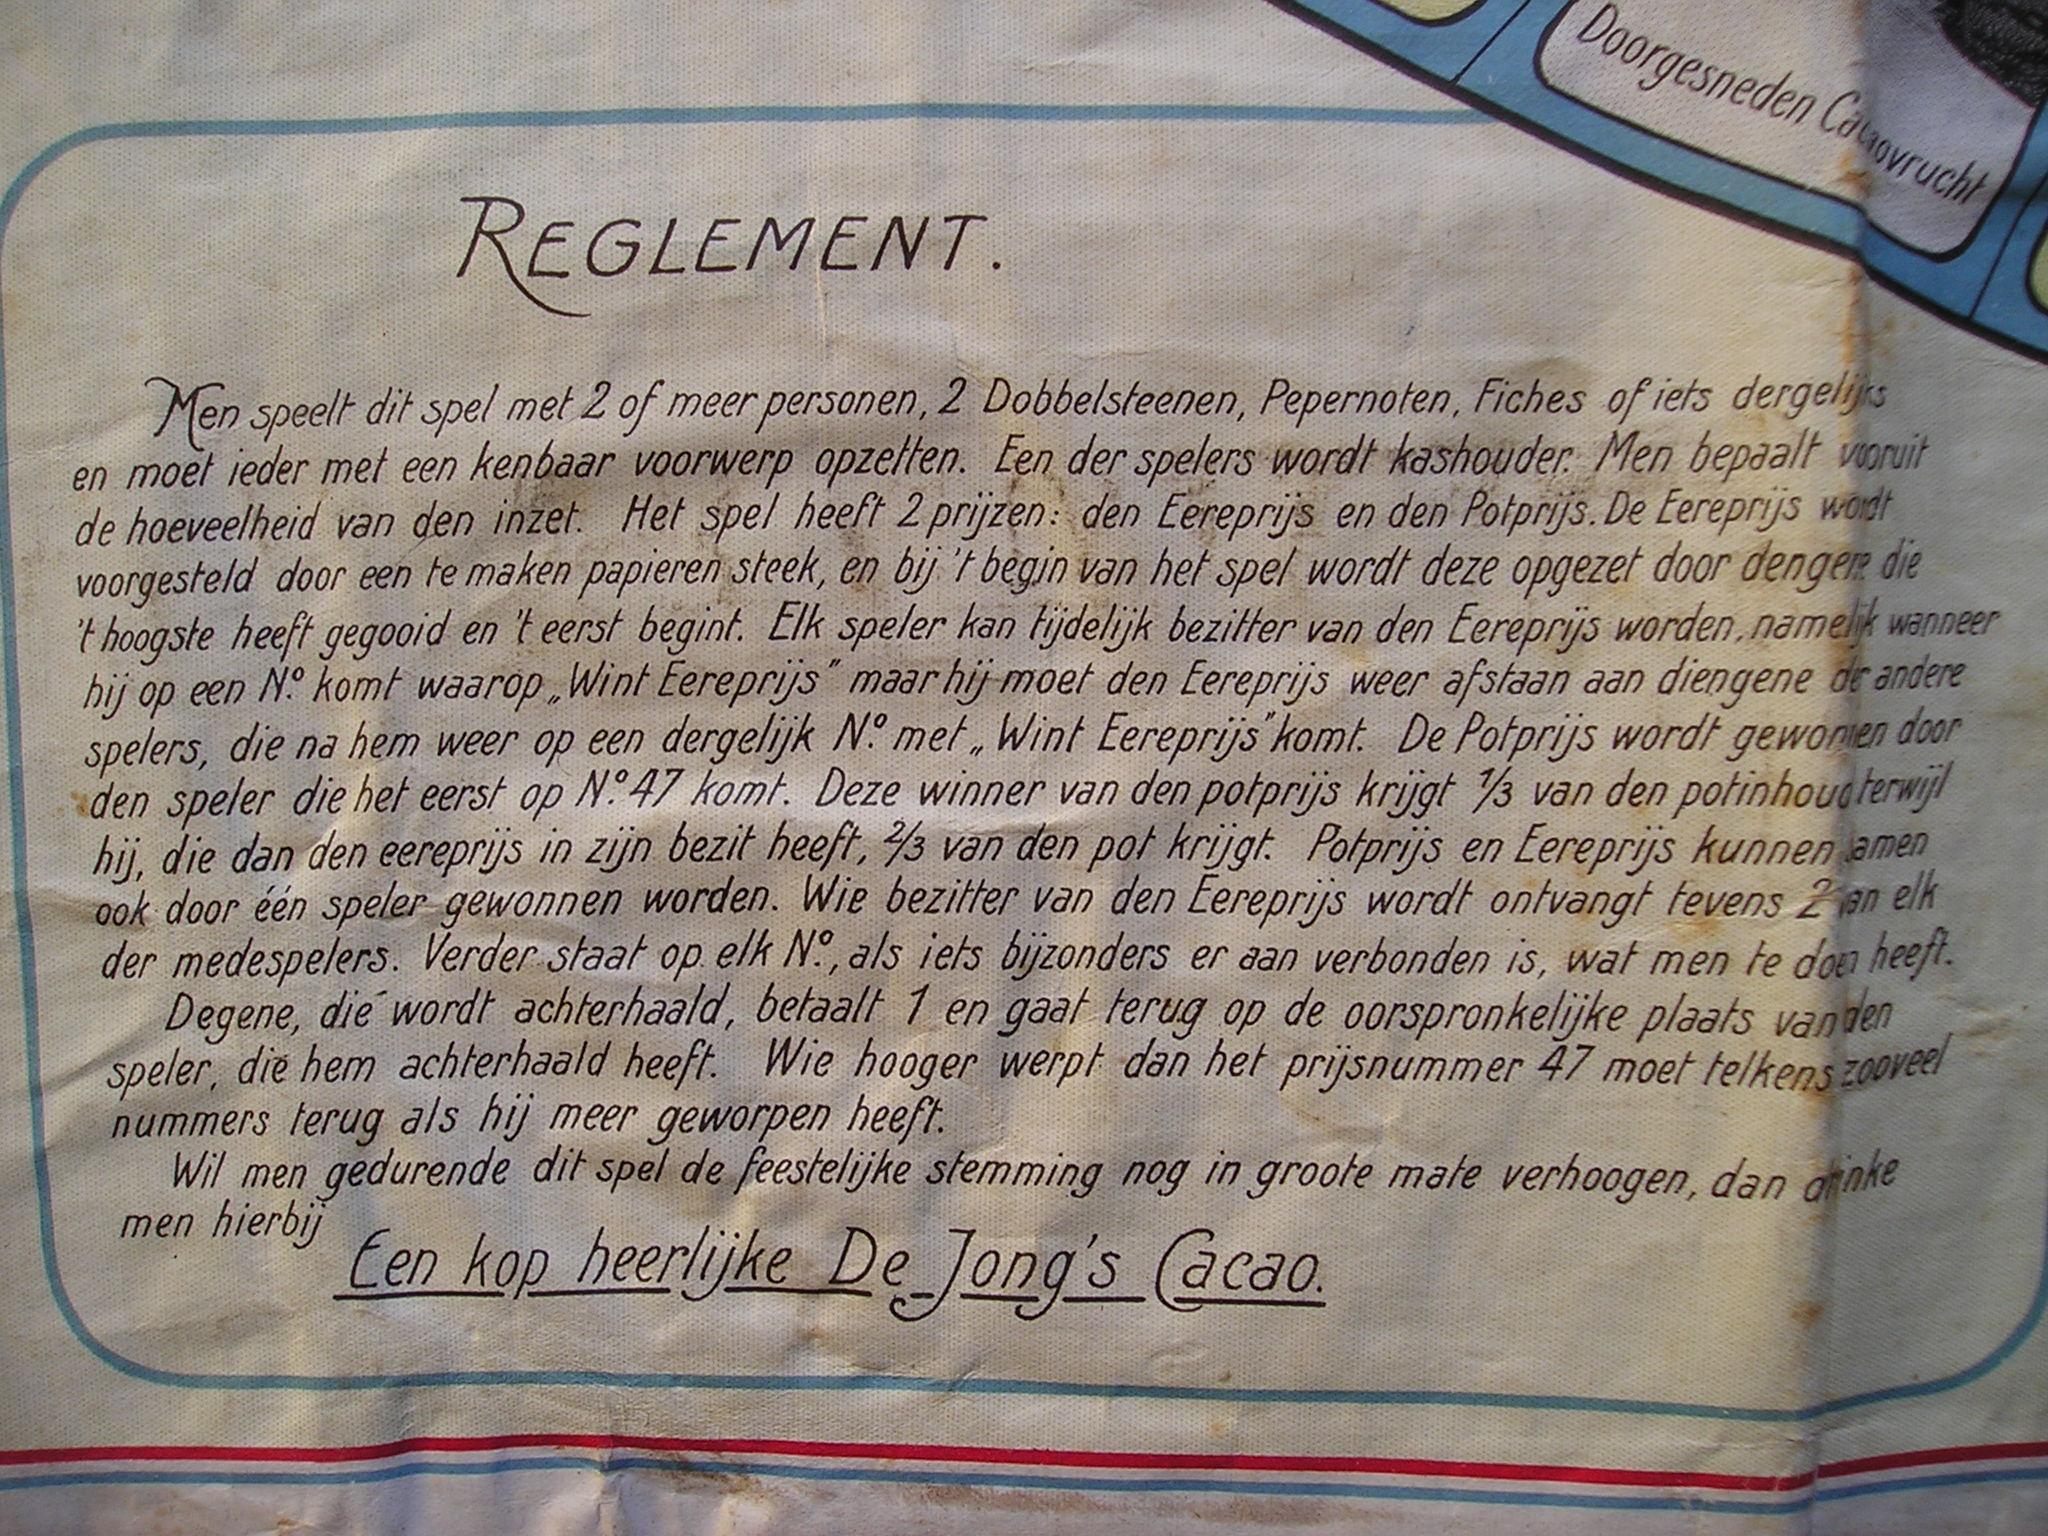 Doorgesneden Cacaovrucht
REGLEMENT.
Men speelt dit spel met 2 of meer personen, 2 Dobbelsteenen, Pepernoten, Fiches of iets dergelijks
en moet ieder met een kenbaar voorwerp opzetten. Een der spelers wordt kashouder. Men bepaalt vooruit
de hoeveelheid van den inzet. Het spel heeft 2 prijzen: den Eereprijs en den Potprijs. De Eereprijs wordt
voorgesteld door een te maken papieren steek, en bij 't begin van het spel wordt deze opgezet door dengene die
't hoogste heeft gegooid en 't eerst begint. Elk speler kan tijdelijk bezitter van den Eereprijs worden, namelijk wanneer
hij op een No. komt waarop „Wint Eereprijs” maar hij moet den Eereprijs weer afstaan aan diengene der andere
spelers, die na hem weer op een dergelijk No. met „Wint Eereprijs” komt. De Potprijs wordt gewonnen door
den speler die het eerst op No. 47 komt. Deze winner van den potprijs krijgt 1/3 van den potinhoud terwijl
hij, die dan den eereprijs in zijn bezit heeft, 2/3 van den pot krijgt. Potprijs en Eereprijs kunnen samen
ook door één speler gewonnen worden. Wie bezitter van den Eereprijs wordt ontvangt tevens 2 van elk
der medespelers. Verder staat op elk No., als iets bijzonders er aan verbonden is, wat men te doen heeft.
Degene, die wordt achterhaald, betaalt 1 en gaat terug op de oorspronkelijke plaats van den
speler, die hem achterhaald heeft. Wie hooger werpt dan het prijsnummer 47 moet telkens zooveel
nummers terug als hij meer geworpen heeft.
Wil men gedurende dit spel de feestelijke stemming nog in groote mate verhoogen, dan drinke
men hierbij
Een kop heerlijke De Jong's Cacao.